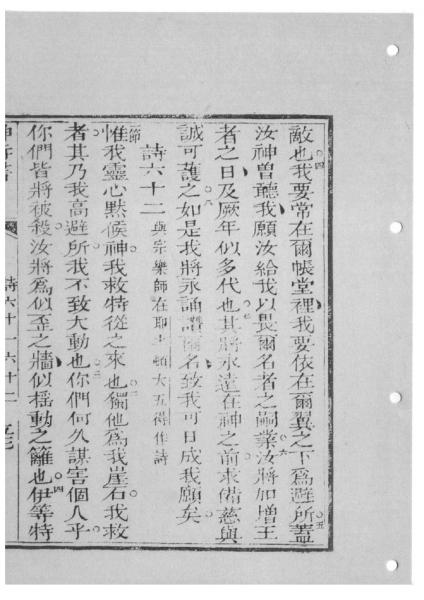 敵也○四我要常在爾帳堂裡我要依在爾翼之下爲避所蓋○五
汝神曾聽我願汝給我以畏爾名者之嗣業○六汝將加增王
者之日及厥年似多代也○七其將永遠在神之前求備慈與
誠可護之○八如是我將永誦讚爾名致我可日成我願矣
詩六十二 與宗樂師在耶 頓大五得作詩
節惟我靈心默候神我救特從之來也○二獨他爲我崖石我救
者其乃我高避所我不致大動也○三你們何久謀害個人乎
你們皆將被殺汝將爲似歪之牆似搖動之籬也○四伊等特
詩六十一 六十二